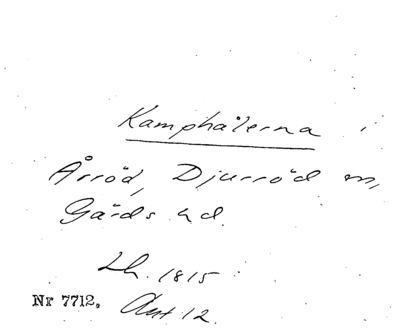 Kamphålerna
Årröd, Djurröd sn,
Gärds hd.
Lh. 1815
Nr 7712. Akt 12.